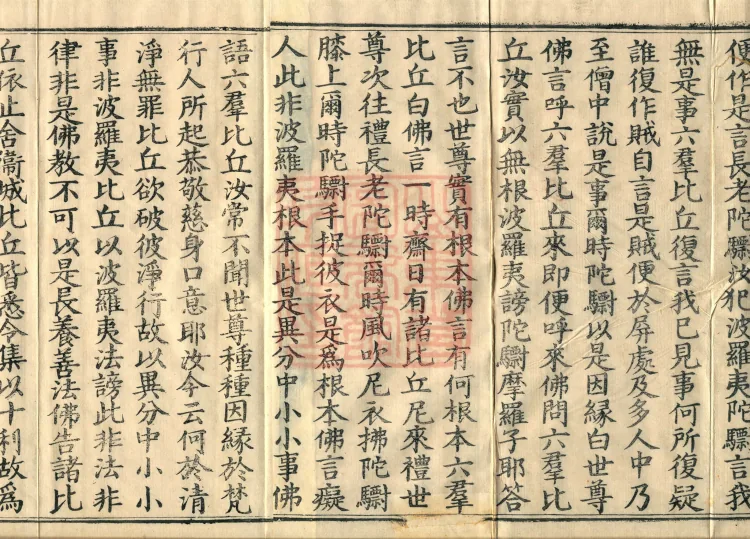 便作是言長老陀驃汝犯波羅夷陀驃言我
無是事六羣比丘復言我已見事何所復疑
誰復作賊自言是賊便於屏處及多人中乃
至僧中說是事爾時陀驃以是因緣白世尊
佛言呼六羣比丘來即便呼來佛問六羣比
丘汝實以無根波羅夷謗陀驃摩羅子耶答
言不也世尊實有根本佛言有何根本六羣
比丘白佛言一時齋日有諸比丘尼來禮世
尊次往禮長老陀驃爾時風吹尼衣拂陀驃
膝上爾時陀驃手捉彼衣是為根本佛言癡
人此非波羅夷根本此是異分中小小事佛
語六羣比丘汝常不聞世尊種種因緣於梵
行人所起恭敬慈身口意耶汝今云何於清
淨無罪比丘欲破彼淨行故以異分中小小
事非波羅夷比丘以波羅夷法謗此非法非
律非是佛教不可以是長養善法佛告諸比
丘依止舍衛城比丘皆悉令集以十利故為